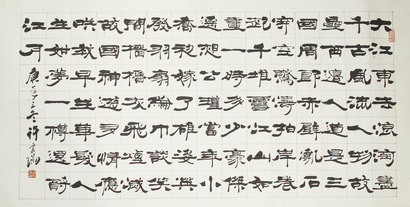 大江東去浪淘盡
千古風流人物故
壘西邊人道是三
國周郎赤壁亂石
穿空驚濤拍岸卷
起千堆雪江山如
畫一時多少豪傑
遥想公瑾當年小
喬初嫁了雄姿英
發羽扇綸巾談笑
間檣櫓灰飛煙滅
故國神遊多情應
笑我早生華髮人
生如夢一樽還酹
江月